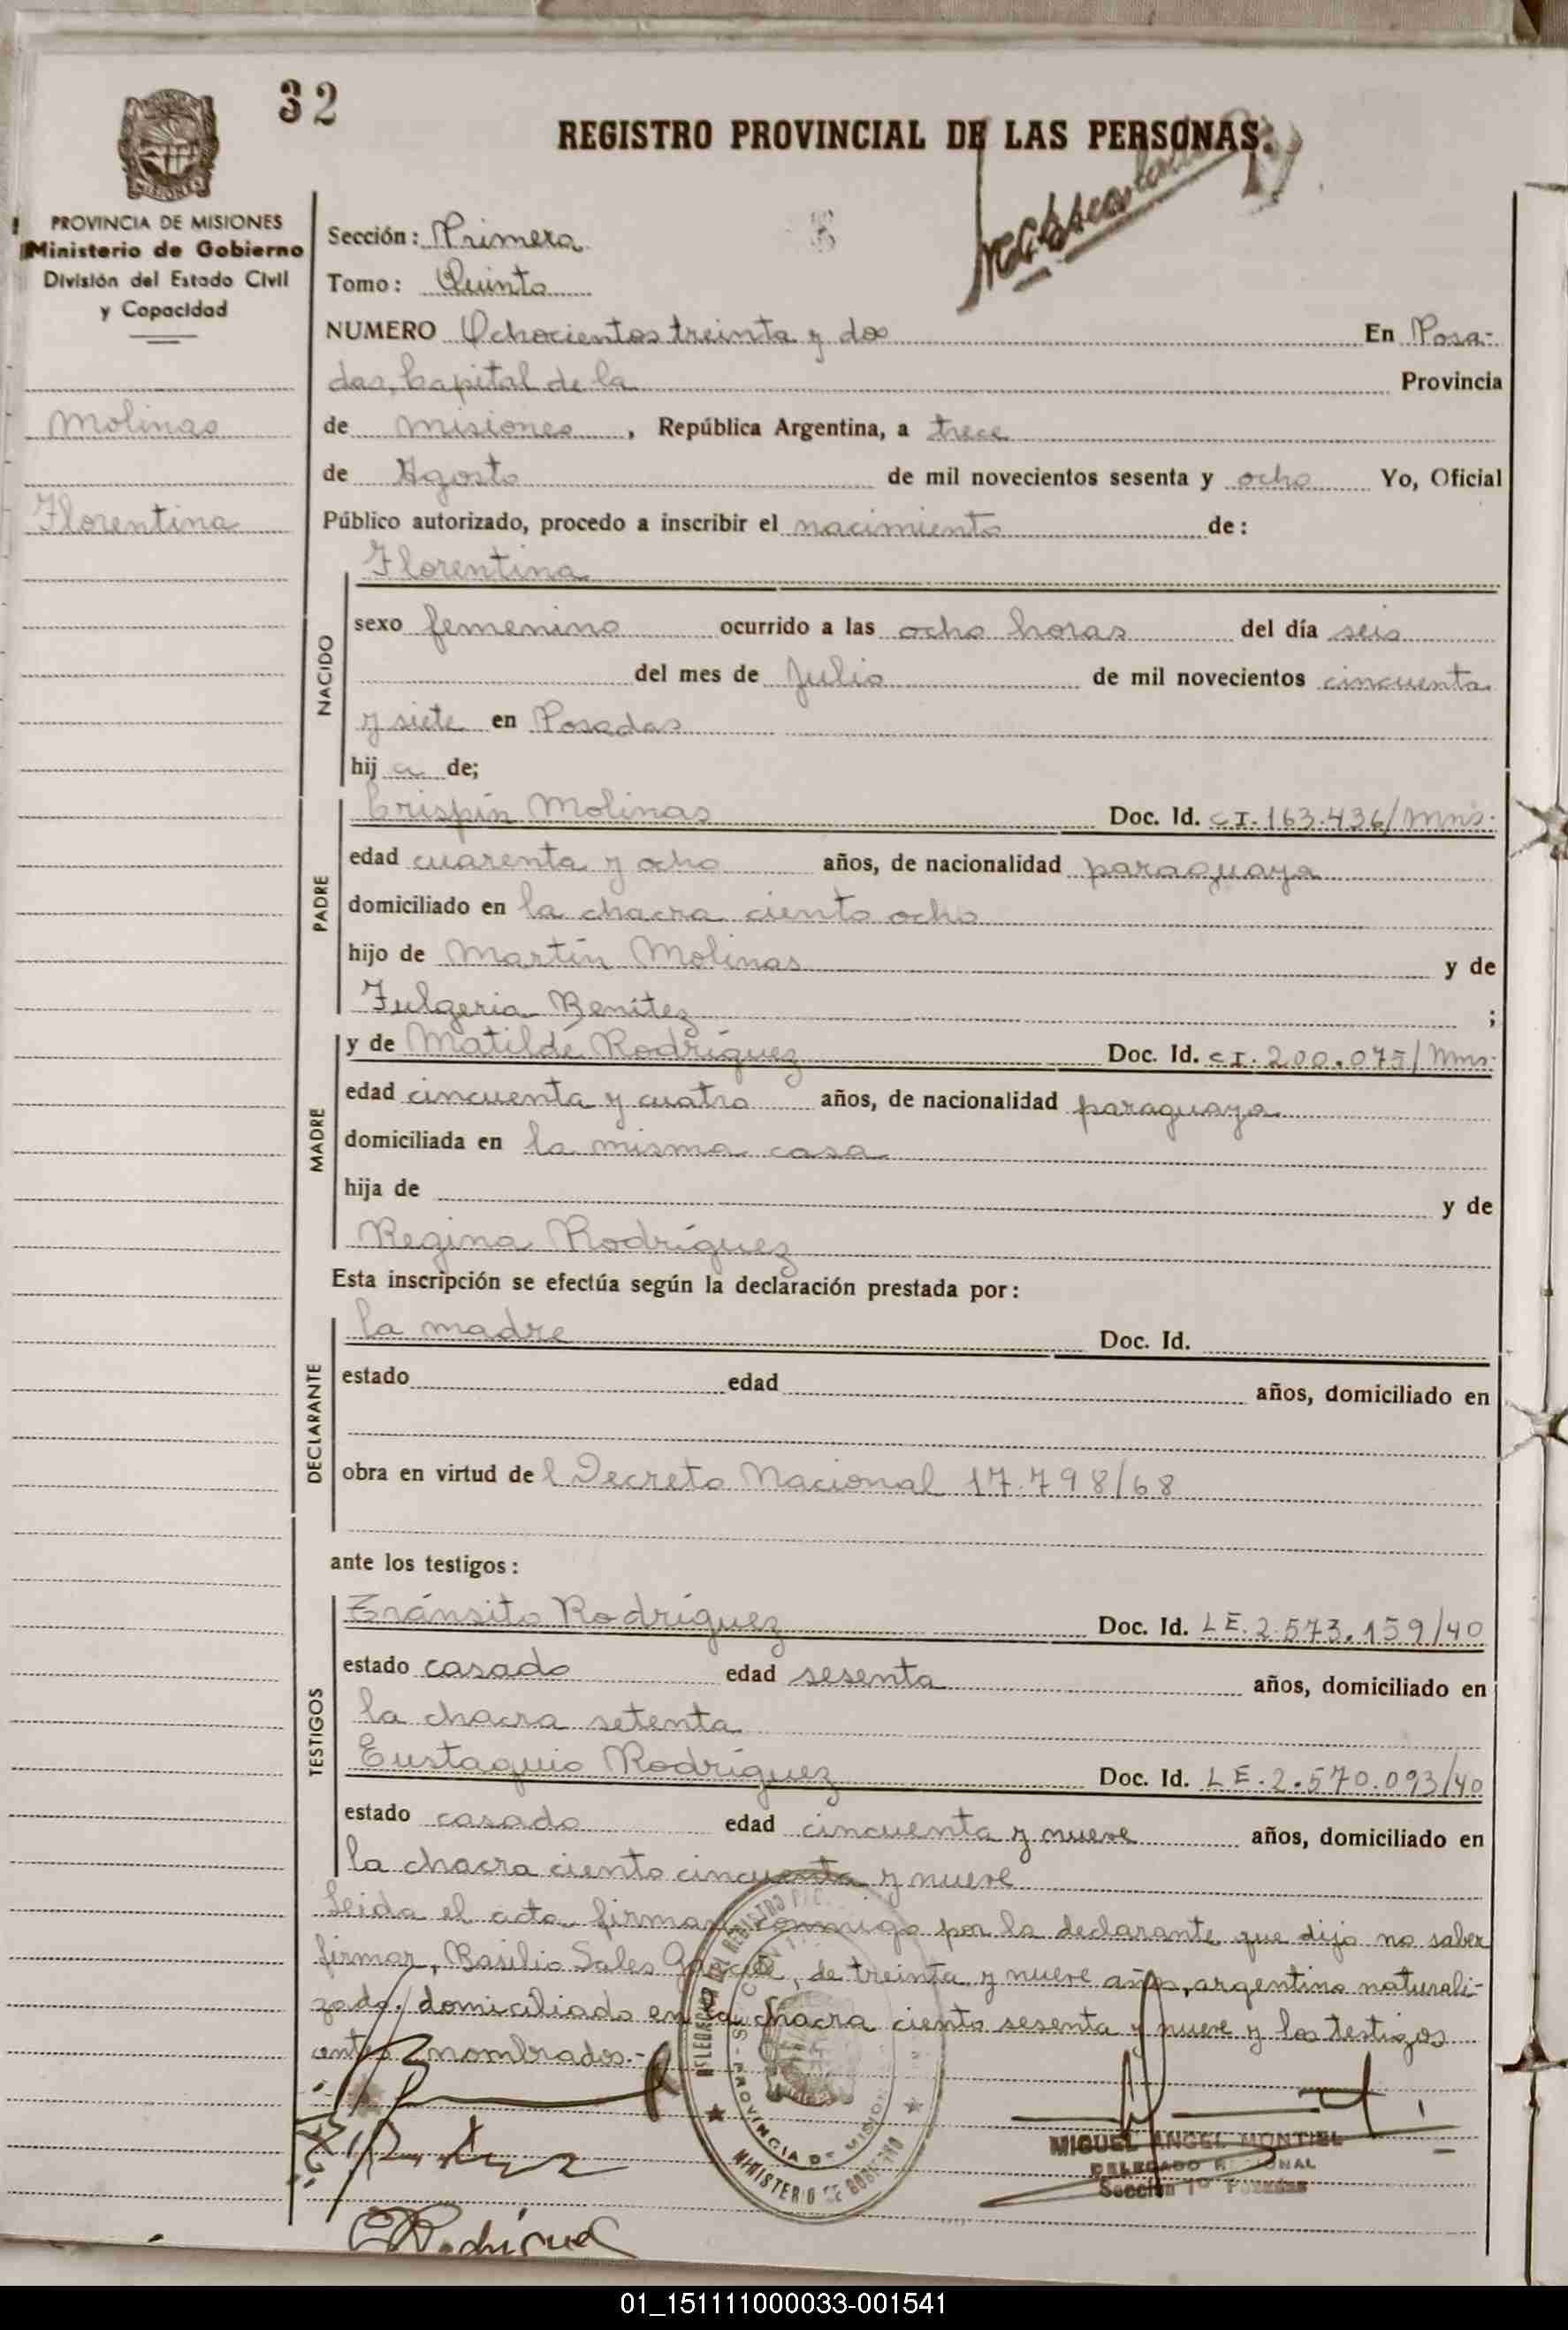 32
REGISTRO PROVINCIAL DE LAS PERSONAS.
PROVINCIA DE MISIONES
Ministerio de Gobierno
División del Estado Civil
y Capacidad
Molinas
Florentina
Sección: Primera
Tomo: Quinto
NUMERO Ochocientos treinta y dos En Posa-
das, Capital de la Provincia
de Misiones, República Argentina, a trece
de Agosto de mil novecientos sesenta y ocho Yo, Oficial
Público autorizado, procedo a inscribir el nacimiento de:
Florentina
NACIDO
sexo femenino ocurrido a las ocho horas del día seis
del mes de Julio de mil novecientos cincuenta
y siete en Posadas
hija de;
PADRE
Crispín Molinas Doc. Id. CI. 163.436/Mns.
edad cuarenta y ocho años, de nacionalidad paraguaya
domiciliado en la chacra ciento ocho
hijo de Martín Molinas y de
Fulgeria Benítez ;
MADRE
y de Matilde Rodríguez Doc. Id. CI. 200.075/Mns.
edad cincuenta y cuatro años, de nacionalidad paraguaya
domiciliada en la misma casa
hija de y de
Regina Rodríguez
Esta inscripción se efectúa según la declaración prestada por:
DECLARANTE
la madre Doc. Id.
estado edad años, domiciliado en
obra en virtud del Decreto Nacional 17.798/68
ante los testigos:
TESTIGOS
Tránsito Rodríguez Doc. Id. LE. 2.573.159/40
estado casado edad sesenta años, domiciliado en
la chacra setenta
Eustaquio Rodríguez Doc. Id. LE. 2.570.093/40
estado casado edad cincuenta y nueve años, domiciliado en
la chacra ciento cincuenta y nueve
Leida el acta firman conmigo por la declarante que dijo no saber
firmar, Basilio Sales García, de treinta y nueve años, argentino naturali-
zado, domiciliado en la chacra ciento sesenta y nueve y los testigos
antes nombrados.-
PROVINCIA DE MISIONES
MINISTERIO DE GOBIERNO
MIGUEL ANGEL MONTIEL
DELEGADO REGIONAL
Sección 1º Posadas
01_151111000033-001541